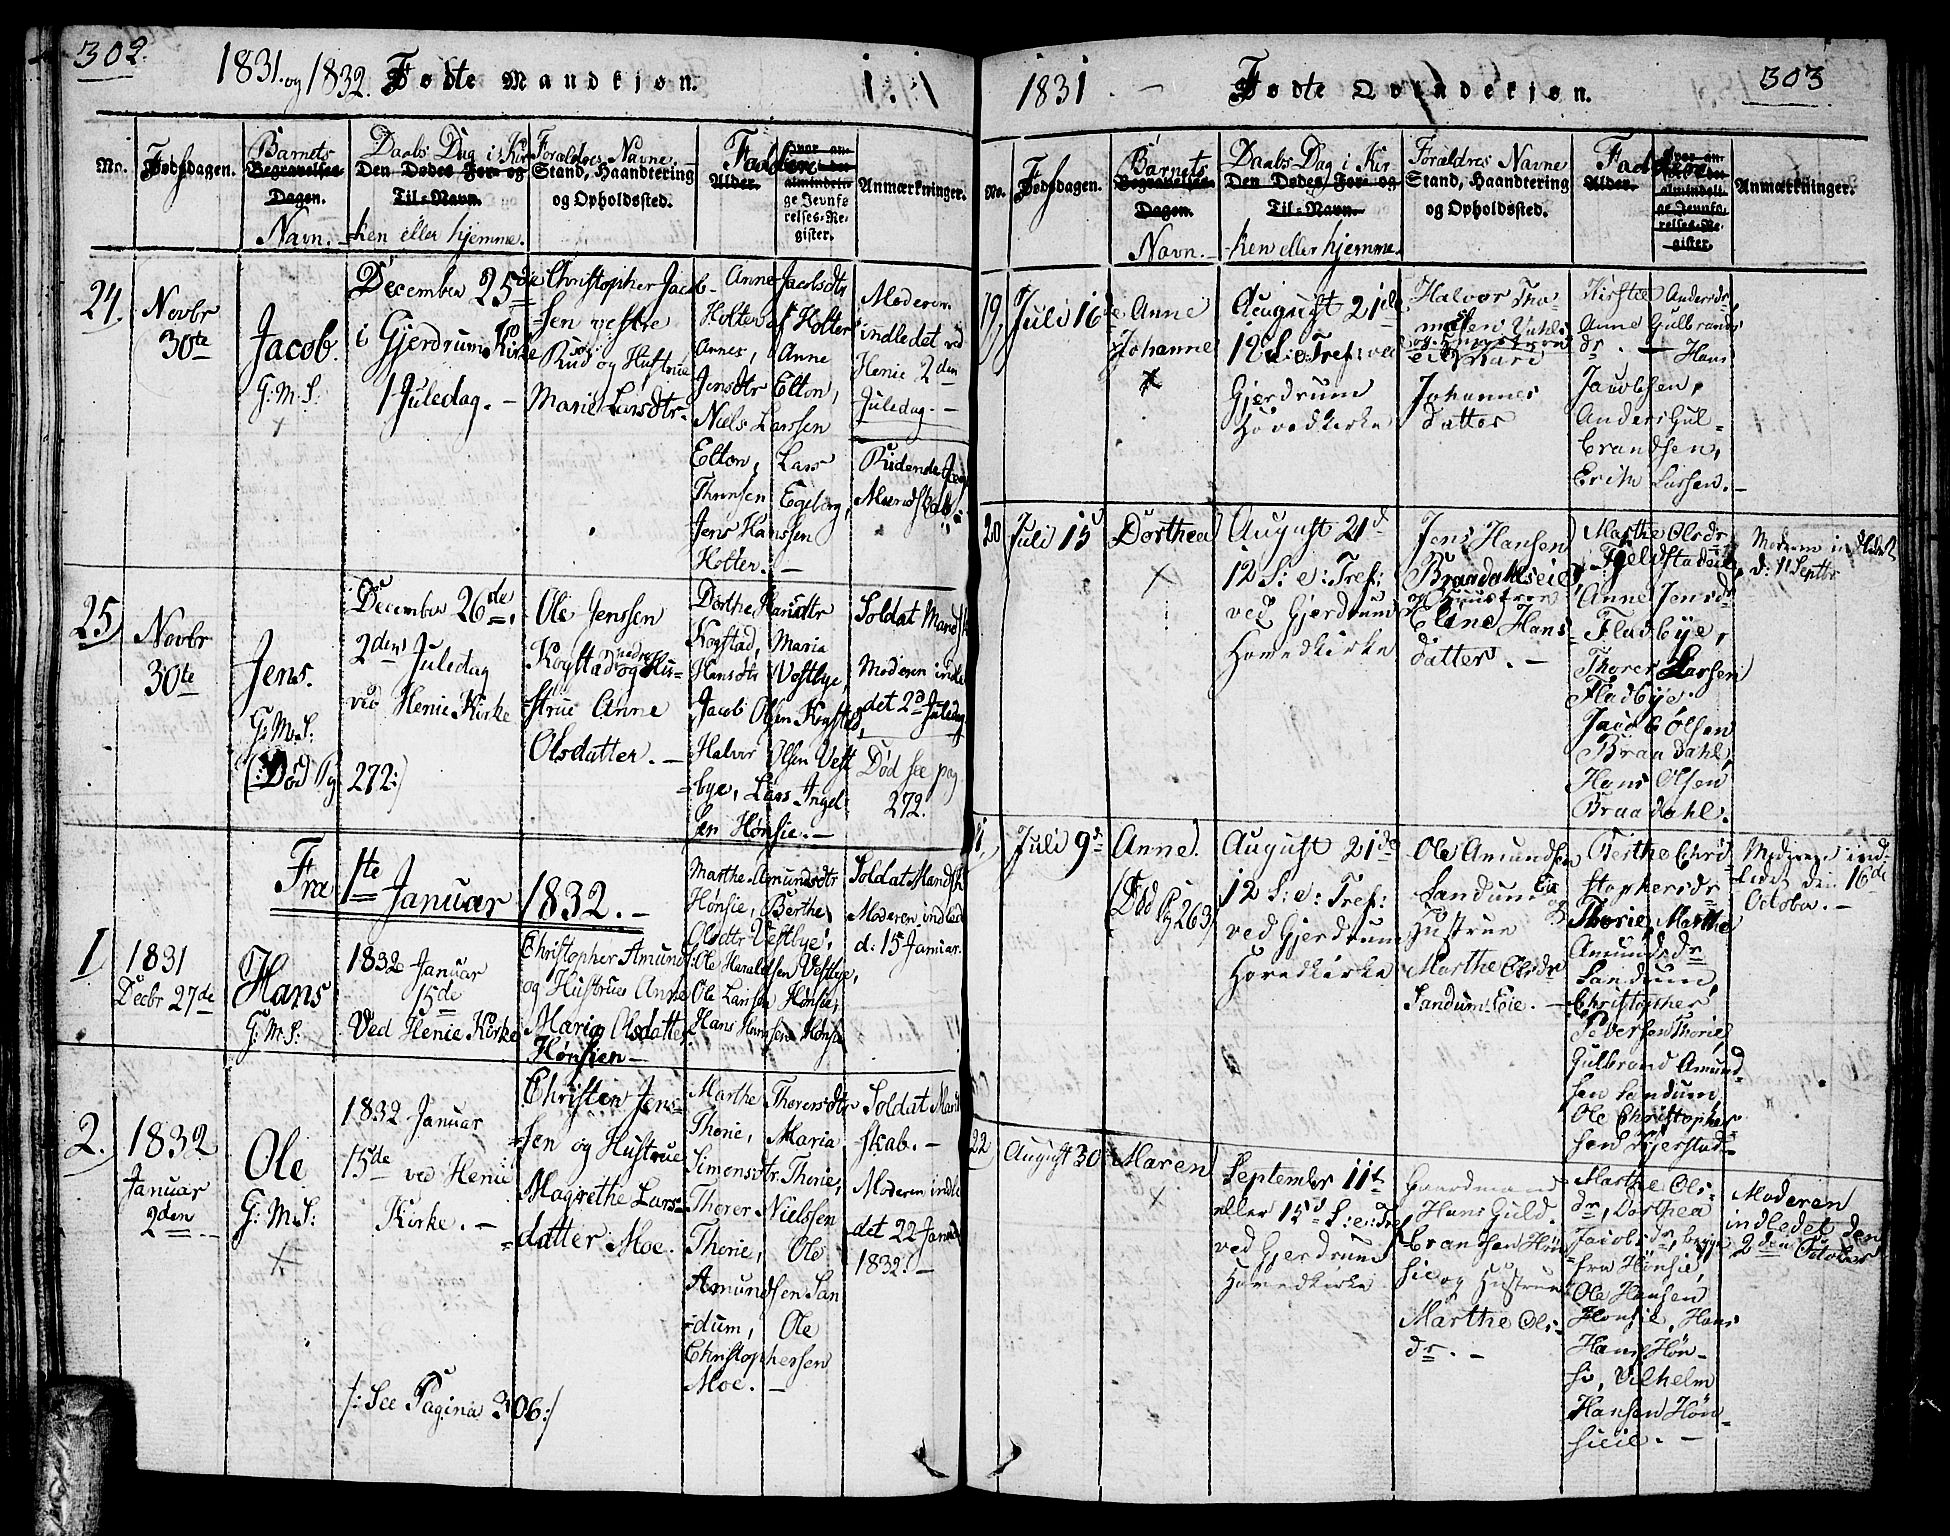 302.
1831. og 1832. Fødte Mandkjøn.
No.
Fødselsdagen.
Barnets
Begravelses-
Dagen.
Navn.
Daabs Dag i Kir
Den Dødes For- og
Til-Navn.
-ken eller hjemme.
Forældres Navne
Stand, Haandtering
og Opholdssted.
Faddere
Alder.
Anmærkninger.
24.
Novbr
30te
Jacob.
G: M: S:
December 25de
i Gjerdrums Kirke
1 Juledag. -
Christopher Jacob-
sen vestre
Rud og Hustrue
Marie Larsdtr.
Anne Jacobsdtr
Holter, Holter
Annes, Anne
Jensdtr Elton,
Niels Larssen
Elton, Lars
Thronsen Egeberg,
Jens Hanssen
Holter. -
Moderen
indledet ved
Henie 2den
Juledag. -
25
Novbr
30te
Jens.
G: M: S:
(:Død Pg 272:)
December 26de,
2den Juledag
ved Henie Kirke
Ole Jenssen
Kogstad nedre og Hu-
strue Anne
Olsdatter. -
Dorthe Hansdtr
Kogstad, Maria
Hansdtr Vestbye,
Jacob Olsen Kogstad,
Halvor Olsen Vest
-bye, Lars Ingel-
sen Hønsie. -
Soldat Mandsk
Moderen indle
det 2d Juledag
Død see pag
272.
Fra 1te Januar 1832. -
1
1831
Decbr 27de
Hans
G: M: S:
1832 Januar
15de
Ved Henie Kirke
Christopher Amunds
og Hustrue Anne
Maria Olsdatter
Hønsien -
Marthe Amundsdtr
Hønsie, Berthe
Olsdtr Vestbye,
Ole Haraldsen Vestbye,
Ole Larssen Hønsie,
Hans Hanssen Hønsie
Soldat Mandsk
Moderen indled
d. 15 Januar.
2.
1832
Januar
2den
Ole
G: M: S:
1832 Januar
15de ved Henie
Kirke. -
/: See Pagina 306:/
Christen Jens-
sen og Hustrue
Magrethe Lars-
datter Moe.
Marthe Thorersdtr
Thorie, Maria
Simonsdtr Thorie,
Thorer Nielssen
Thorie, Ole
Amundsen San
-dum, Ole
Christophersen
Moe. -
Soldat Mand
skab. -
Moderen indle
det 22 Janua
1832. -
303
1831 - Fødte Qvindekjøn.
No.
Fødselsdagen.
Barnets
Begravelses-
Dagen.
Navn. -
Daabs Dag i Kir
Den Dødes For- og
Til-Navn.
-ken eller hjemme.
Forældres Navne
Stand, Haandtering
og Opholdssted.
Faddere
Alder.
Anmærkninger.
19
Juli 16de
Anne
Johanne
August 21de
12 S: e: Tref: ved
Gjerdrum
Hovedkirke
Halvor Tho
Mari
Johannes
datter
Kirstie Andersdr,
Anne Gulbrands
dr. - Hans
Jacobsen,
Anders Gul-
brandsen,
Erik Larsen. -
20
Juli 15
Dorthea
August 21d
12 S: e: Tref:
ved Gjerdrum
Hovedkirke
Jens Hansen
Braadahlseie
og Hustroe
Eline Hans
datter. -
Marthe Olsdr
Fjeldstadeie,
Anne Jensdr
Fladbye,
Thorer Larsen
Fladbye.
Jacob Olsen
Braadahl,
Hans Olsen
Braadahl.
Moderen indledt
d: 11 Septbr
Juli 9d
Anne.
(Død Pg 263)
August 21de
12 S: e: Tref:
ved Gjerdrum
Hovedkirke
Ole Amundsen
Sandum Eie
Hustrue
Marthe Olsdr
Sandum Eie. -
Berthe Chri
stophersdr
Thorie, Marthe
Amundsdr
Sandum,
Christopher
Pedersen Thorie,
Gulbrand Amund-
sen Sandum,
Ole Christopher
sen Kjerstad. -
Moderen ind-
ledet den 16de
October. -
22
August 30
Maren
September 11t
eller 15d S: e: Tref
ved Gjerdrum
Hovedkirke
Gaardmand
Hans Guld-
brandsen Høn
sie og Hustrue
Marthe Ols-
dr. -
Marthe Ols-
dr, Dorthea
Jacobsdr, begge
fra Hønsie,
Ole Hansen
Hønsie, Hans
Hans Høn-
sie, Vilhelm
Hansen Høn-
sieie. -
Moderen
indledet den
2den October